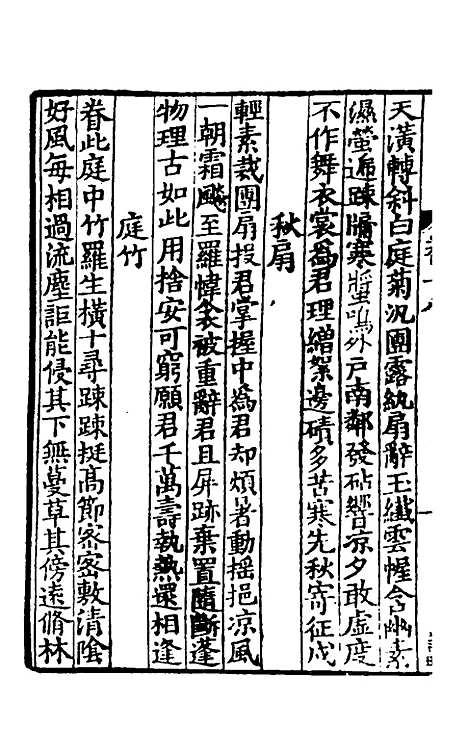 天潢轉斜白庭菊沉團露紈扇辭玉纖雲幄含幽素
濕螢遞踈牖寒螿鳴外户南鄰發砧響凉夕敢虚度
不作舞衣裳為君理繒絮邊磧多苦寒先秋寄征戍
秋扇
輕素裁團扇投君掌握中為君却煩暑動揺挹凉風
一朝霜飇至羅幃衾被重辭君且屏跡棄置隨斷蓬
物理古如此用捨安可窮願君千萬壽執熱還相逢
庭竹
眷此庭中竹羅生橫十尋踈踈挺高節密密敷清陰
好風每相過流塵詎能侵其下無蔓草其傍遠脩林